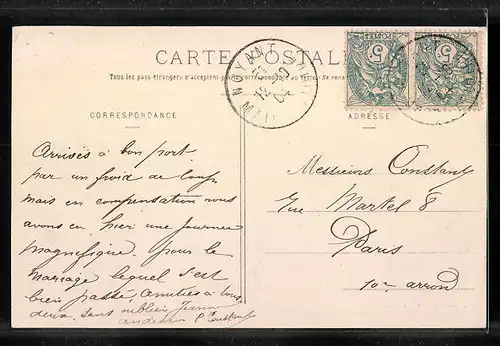 CARTE POSTALE
Tous les pays étrangers n'acceptent pas la correspondance au Recto. Se rens
CORRESPONDANCE
ADRESSE
NOYANT
12
04
POSTES
5
5
Arrivés à bon port
par un froid de loup
mais en compensation nous
avons eu hier une journée
magnifique pour le
mariage lequel s'est
bien passé, amitiés à tous
deux. sans oublier
P Constant
Messieurs Constant
rue Martel 8
Paris
10e arrond